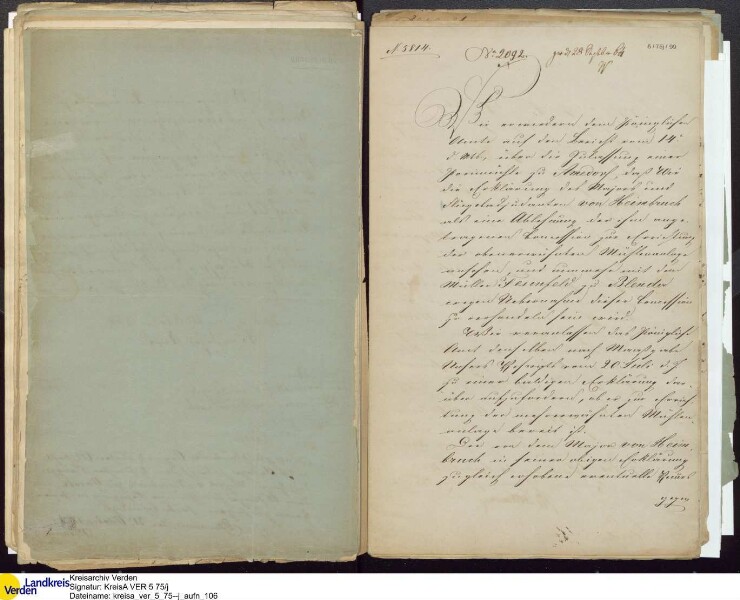 N 5814.
No 2092.
Wir erwiedern dem Königlichen
Amte auf den Bericht vom 14ten
d. Mts., über die Zulassung einer
zu Amedorf, daß Wir
die Erklärung des Majors und
Flügeladjudanten von Heimbruch
als eine Ablehnung der ihm ange-
tragenen Concession zur Errichtung
der obenerwähnten Mühlenanlage
ansehen, und nunmehr mit dem
Müller Fesenfeld zu Blender
wegen Uebernahme dieser Concession
zu verhandeln sein wird.
Wir veranlassen das Königliche
Amt denselben nach Maaßgabe
Unsers Rescripts vom 20 Juli d. J.
zu einer baldigen Erklärung dar-
über aufzufordern, ob er zur Errich-
tung der mehrerwähnten Mühlen-
anlage bereit ist.
Die von dem Major von Heim-
bruch in seiner obigen Erklärung
zugleich erhobene eventuelle
gegen
Landkreis
Verden
Kreisarchiv Verden
Signatur: KreisA VER 5 75/j
Dateiname: kreisa_ver_5_75--j_aufn_106